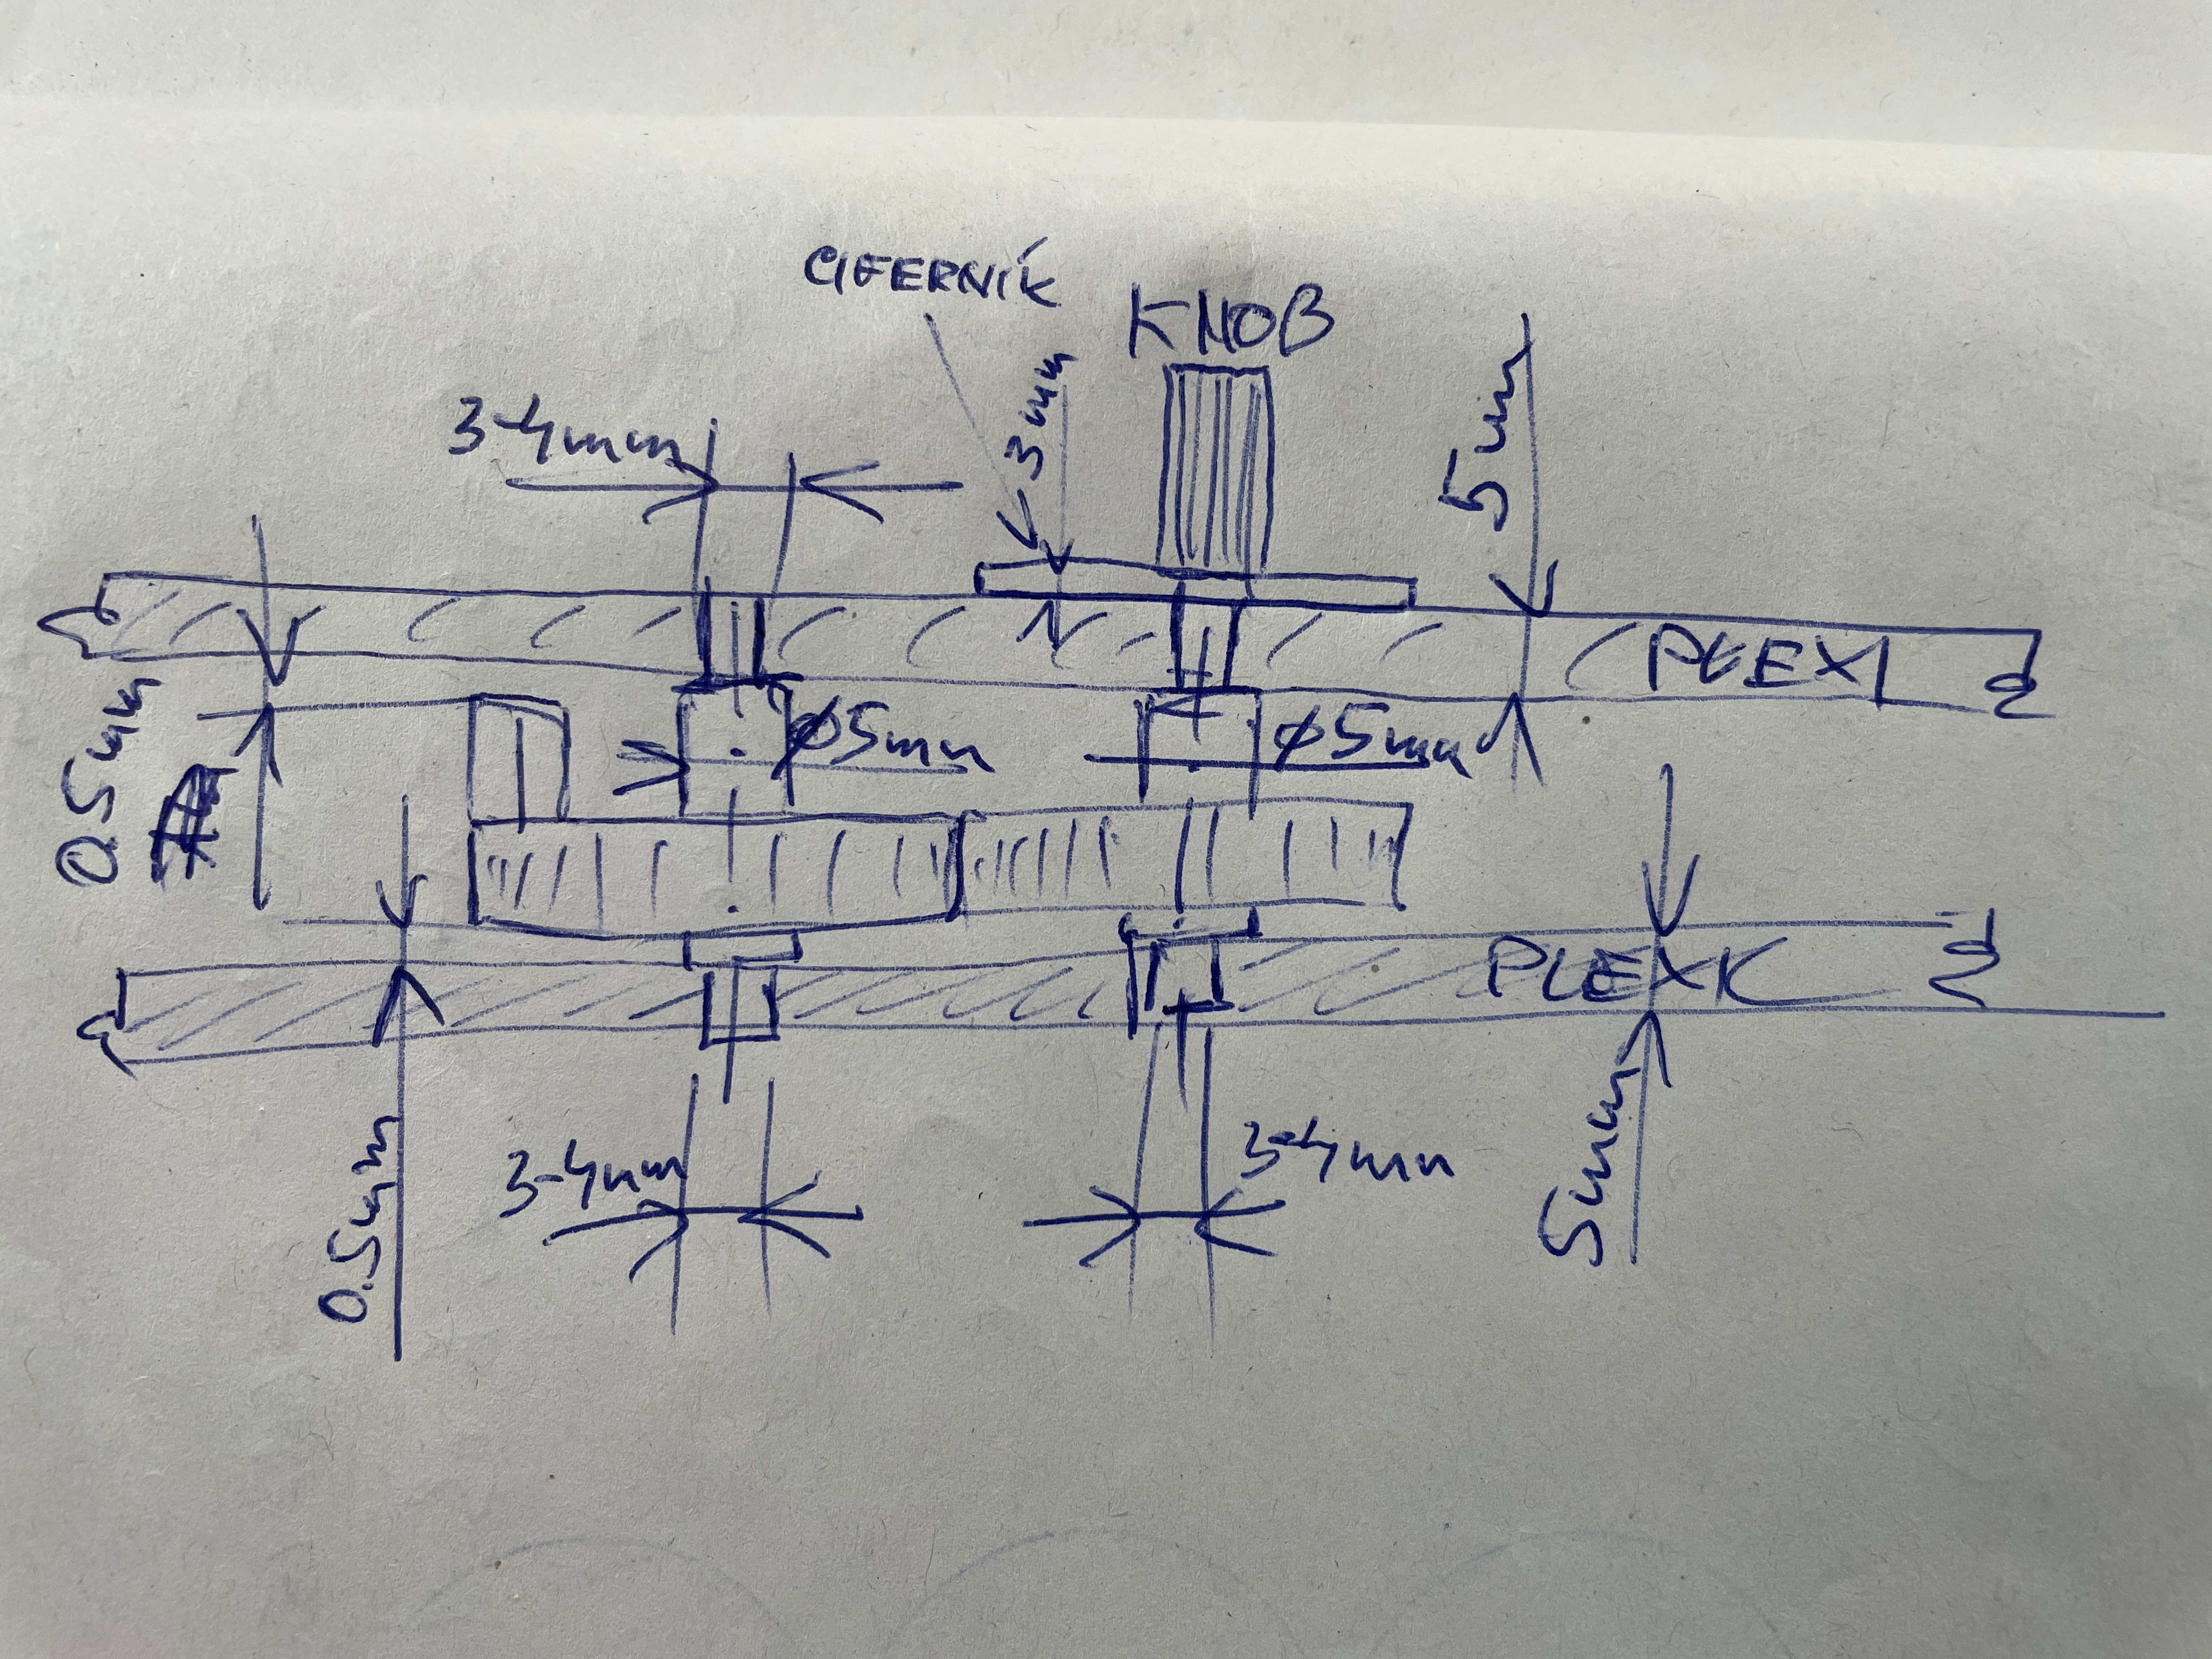 CIFERNÍK
KNOB
3-4mm
3mm
5mm
PLEXI
0.5mm
φ5mm
φ5mm
PLEXI
3-4mm
3-4mm
0.5mm
5mm